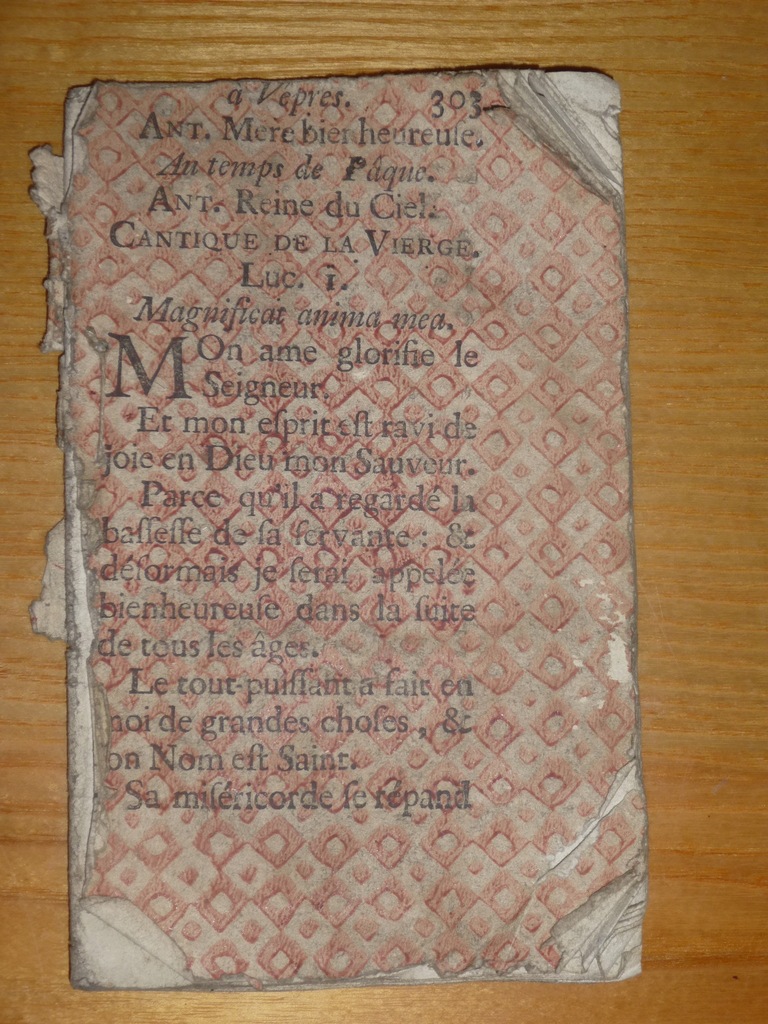 à Vepres. 303
ANT. Mere bienheureuſe.
Au temps de Pâque.
ANT. Reine du Ciel.
CANTIQUE DE LA VIERGE.
Luc. 1.
Magnificat anima mea.
MOn ame glorifie le
Seigneur.
Et mon eſprit eſt ravi de
joie en Dieu mon Sauveur.
Parce qu'il a regardé la
baſſeſſe de ſa ſervante : &
déſormais je ſerai appelée
bienheureuſe dans la ſuite
de tous les âges.
Le tout-puiſſant a fait en
moi de grandes choſes, &
on Nom eſt Saint.
Sa miſéricorde ſe répand